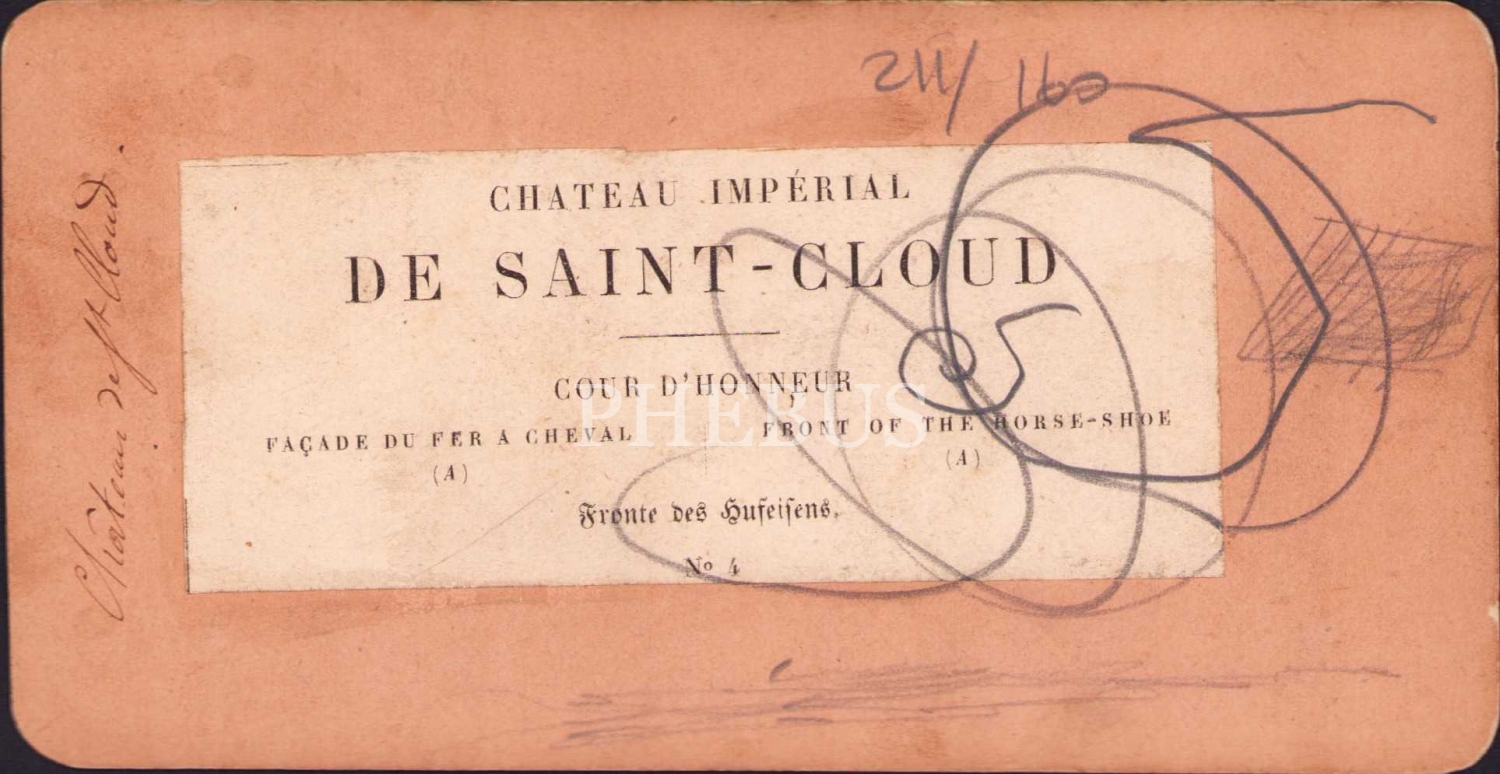 211/ 160
CHATEAU IMPÉRIAL
DE SAINT-CLOUD
COUR D'HONNEUR
FAÇADE DU FER A CHEVAL
(A)
FRONT OF THE HORSE-SHOE
(A)
Fronte des Hufeisens.
No 4
Château de St Cloud.
PHEBUS